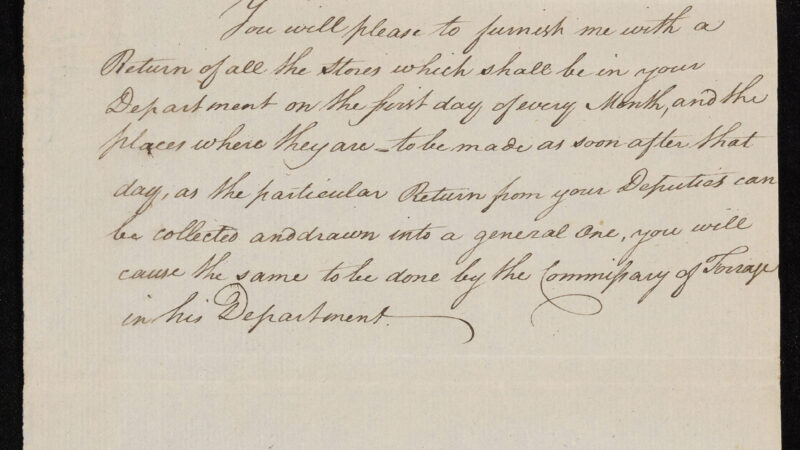 You will please to furnish me with a
Return of all the Stores which shall be in your
Department on the first day of every Month, and the
places where they are – to be made as soon after that
day, as the particular Return from your Deputies can
be collected and drawn into a general One, you will
cause the same to be done by the Commissary of Forrage
in his Department.